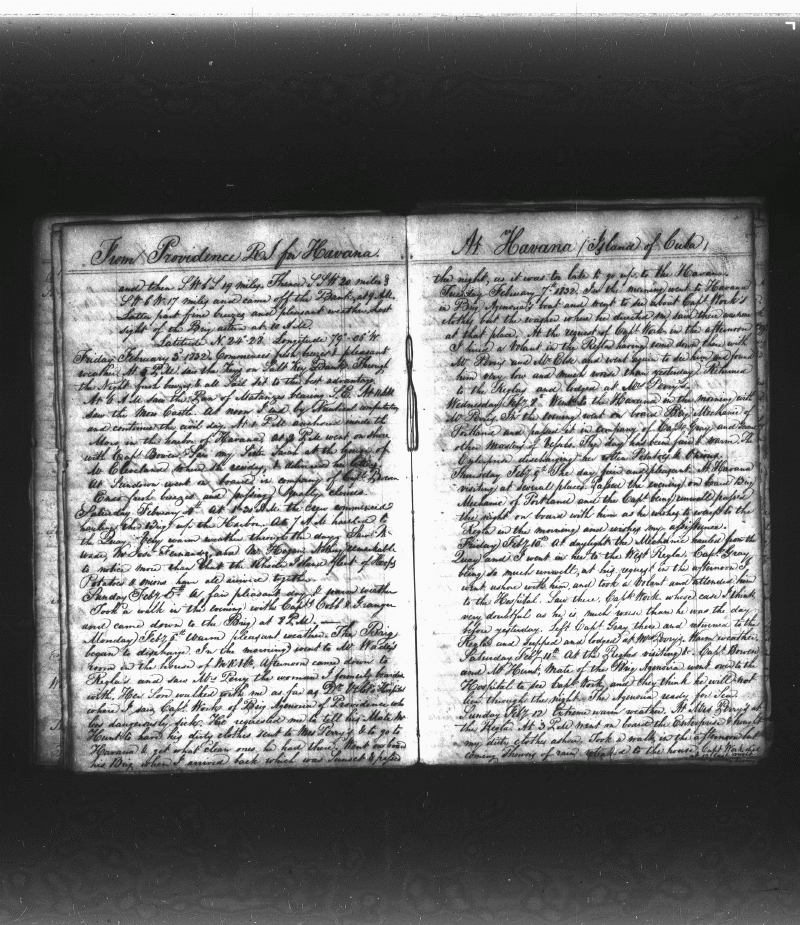 From Providence R I for Havana.
and then S W b S 19 miles. Thence S S W 20 miles &
S W b W 17 miles and came off the Bank at 9 A M.
Latter part fine breezes and pleasant weather. Lost
sight of the Brig astern at 10 A M.
Latitude N. 24° 23 Longitude 79° 05 W.
Friday February 3d 1832. Commences fresh breezes & pleasant
weather. At 5 P M saw the Keys on Salt Key Bank. Through
the Night fresh breezes & all Sail set to the best advantage.
At 6 A M saw the Pan of Matanzas bearing S E. At
saw the Moro Castle. At noon I end by Nautical
and continue the civil day. At 1 P M anchored inside the
Moro in the harbor of Havana. At 3 P M went on shore
with Capt Bowen. Saw my at the house of
Mr Cleveland where he resides, & delivered
At Sundown went on board in company of Capt Bowen
fresh breezes and passing
Saturday February 4th At 1.30 P M the crew commenced
the Brig up the Harbor. At 7 A M hauled to
the Quay. Very warm weather through the day. Saw
Mr Jose Fernandez also Mr Hogan. Nothing remarkable
to notice more than that the Rhode Island fleet of
Potatoes & onions have all arrived together.
Sunday Feby 5th A fair pleasant day & warm weather
Took a walk in the evening with Capt Cobb &
and came down to the Brig at 8 P M.
Monday Feby 6th Warm pleasant weather. The Brig
began to discharge. In the morning went to Mr Wade's
room in the house of Afternoon came down to
Regla's and saw Mrs Perry the woman I formerly boarded
with. Her Son walked with me as far as Hospital
where I saw Capt Work of Brig Agenoria of Providence who
lies dangerously sick. He requested me to tell his Mate Mr
Hunt to have his dirty clothes sent to Mrs Perry's & to go to
Havana & get what clean ones he had there. Went on board
his Brig when I arrived back which was Sunset & passed
At Havana (Island of Cuba)
the night, as it was to late to go up to the Havana.
Tuesday February 7th 1832. In the morning went to Havana
in Brig Agenoria's boat and went to see about Capt Work's
clothes but the washer where he directed me said there was none
at that place. At the request of Capt Work in the afternoon
I hired a Volant in the Regla having sent down there with
Mr Perry and Mr and went again to see him and found
him very low and much worse than yesterday. Returned
to the Regla and lodged at Mrs Perry's.
Wednesday Feby 8th Went to the Havana in the morning with
Mr Perry. In the evening went on board Brig Mechanic of
Portland and passed it in company of Capt Gray and
other Masters of Vessels. The day has been fair & warm. The
Enterprise discharging her
Thursday Feby 9th The day fair and pleasant. At Havana
visiting at several places. Passed the evening on board Brig
Mechanic of Portland and the Capt being unwell passed
the night on board with him as he wishes to go to the
Regla in the morning and wishes my assistance.
Friday Feby 10th At daylight the Mechanic hauled from the
Quay and I went in her to the West Regla. Capt Gray
being so much unwell, at his request in the afternoon I
went ashore with him and took a Volant and attended him
to the Hospital. Saw there Capt Work whose case I think
very doubtful as he is much worse than he was the day
before yesterday. Left Capt Gray there and returned to the
Regla and supped and lodged at Mrs Perry's. Warm weather.
Saturday Feby 11th At the Reglas visiting &c. Capt Bowen
and Mr Hunt, Mate of the Brig Agenoria went over to the
Hospital to see Capt Work, and they think he will not
live through the night. The Agenoria ready for Sea.
Sunday Feby 12 Extreme warm weather. At Mrs Perry's at
the Regla. At 3 P M went on board the Enterprise & brought
my dirty clothes ashore. Took a walk in the afternoon but
coming Showers of rain to the house. Capt Work died